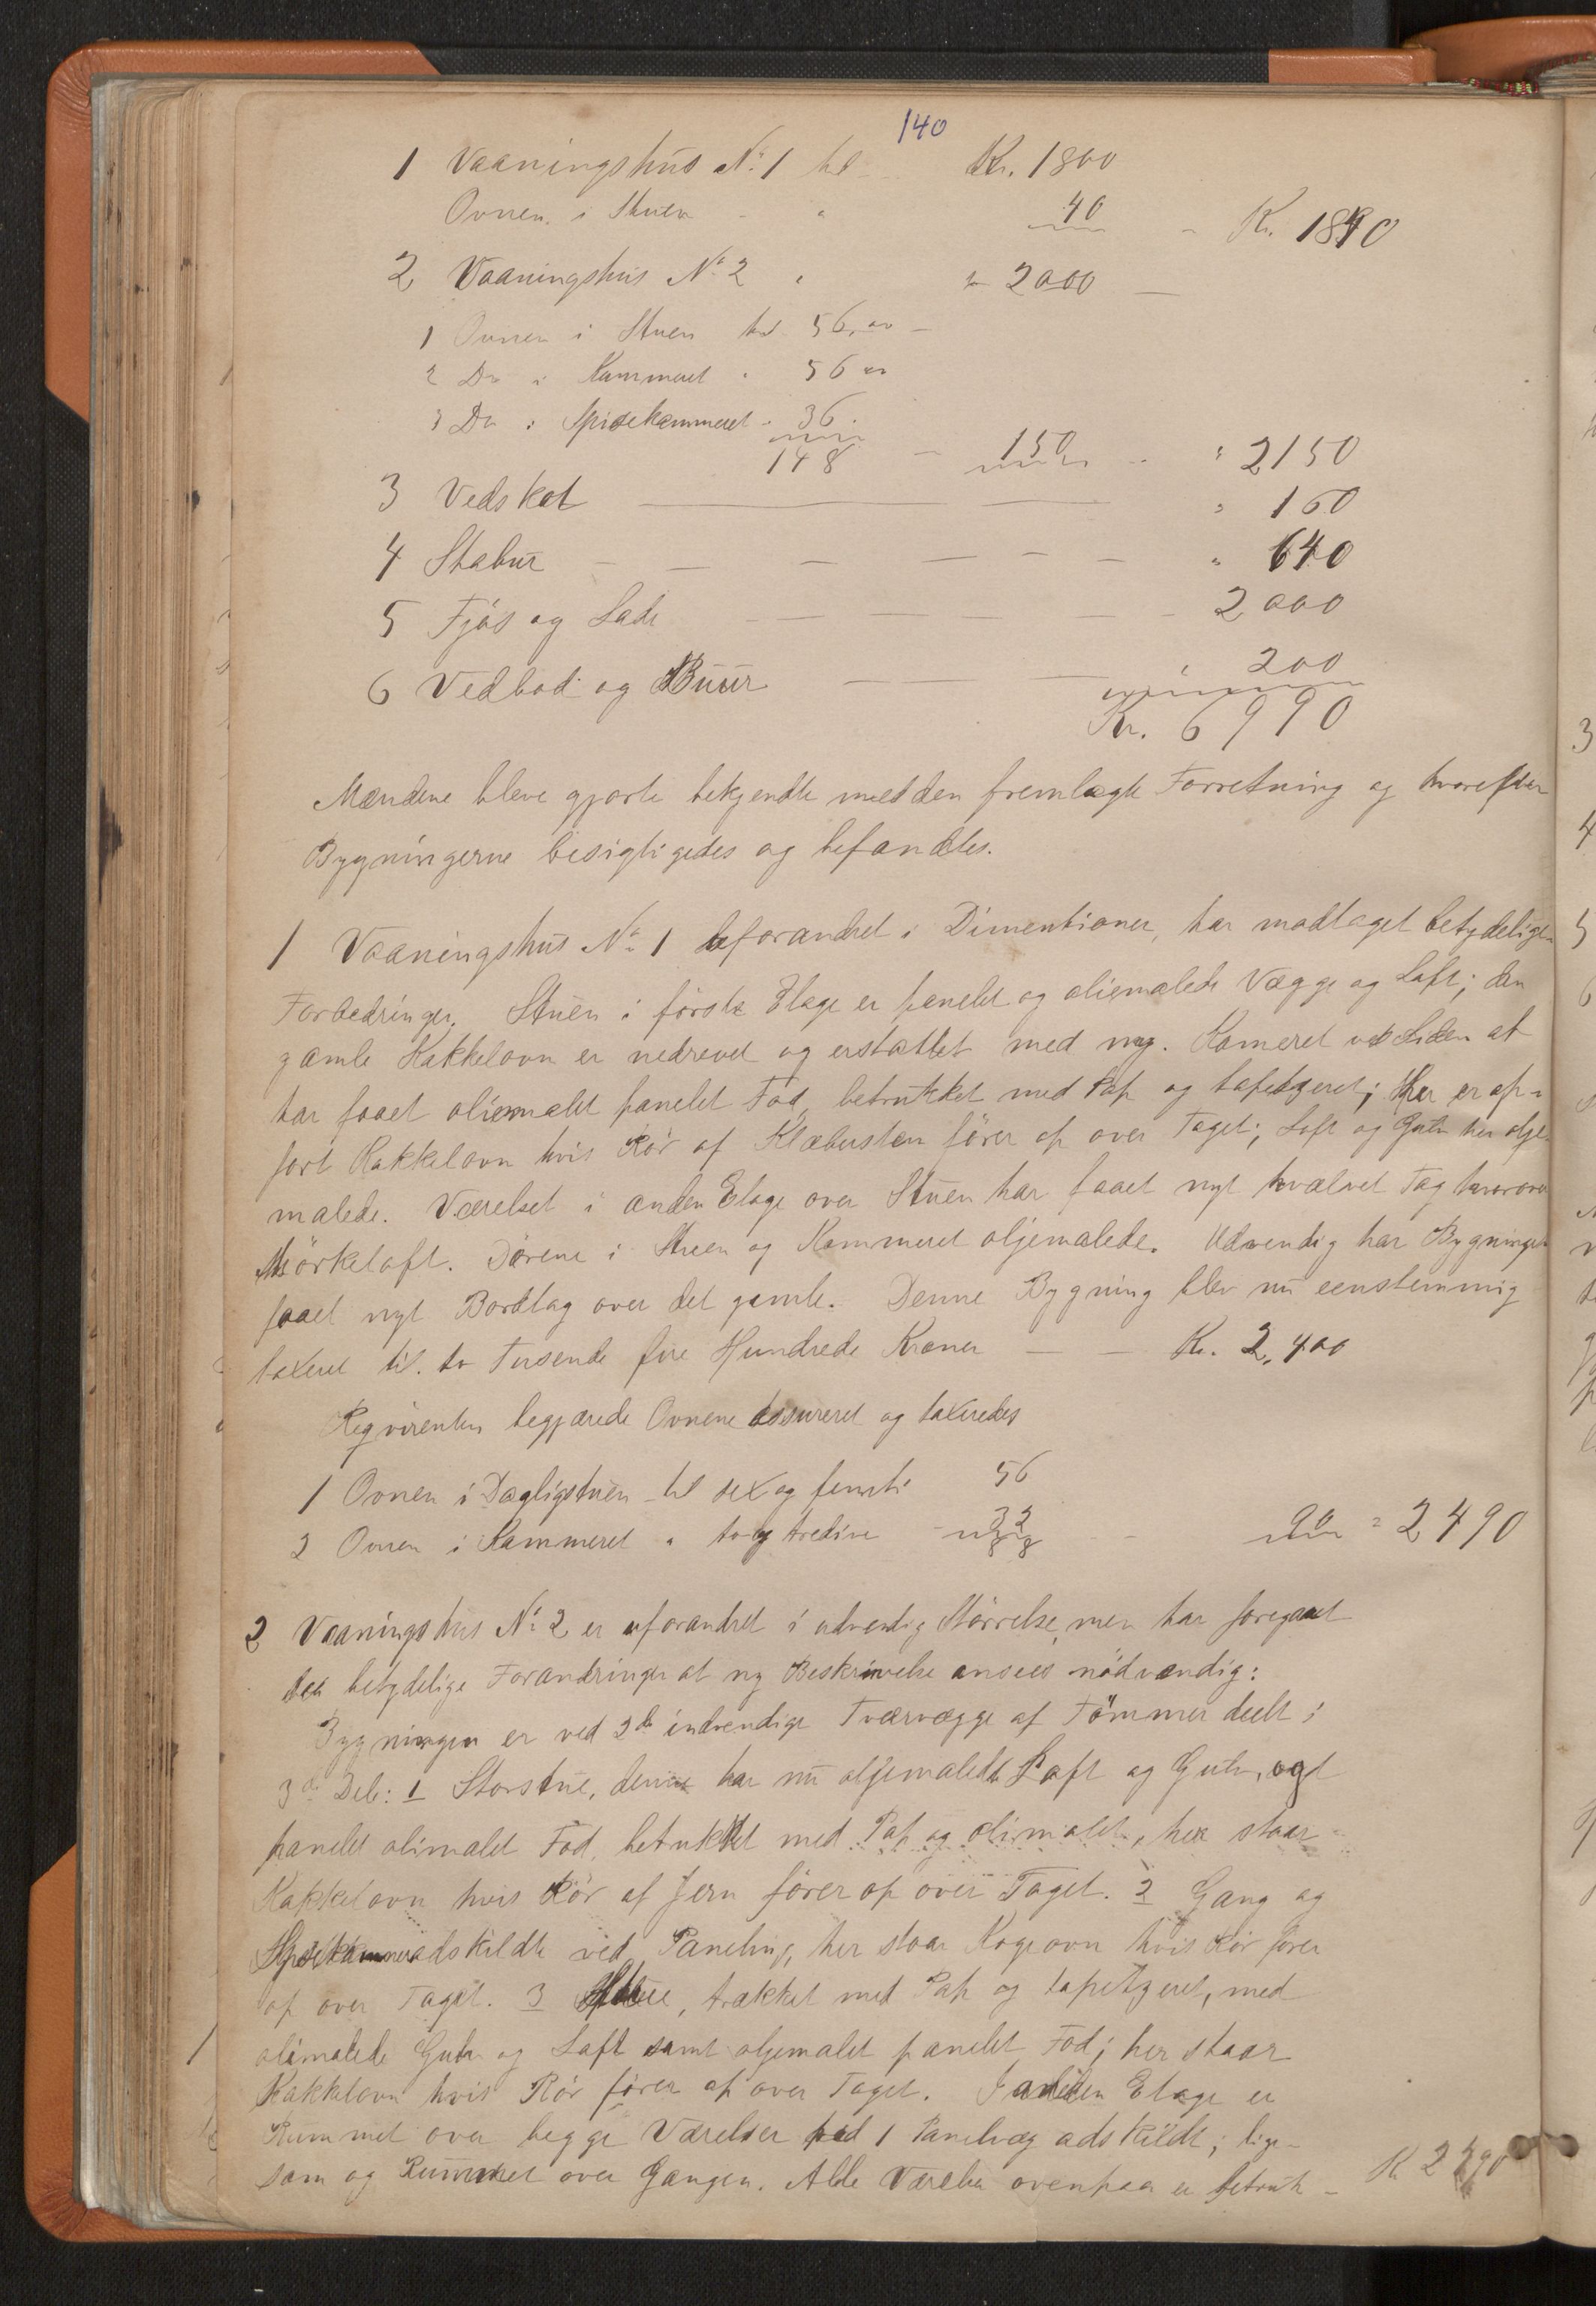 140
1 Vaaningshus No 1 til Kr. 1800
Ovnen i Stuen " 40 - Kr. 1840
2 Vaaningshus No 2 " " 2000 —
1 Ovnen i Stuen til 56,00 -
2 Do i Kammeret " 56 00
3 Do i Spisekammeret " 36.
148 - 150 - " 2150
3 Vedskot — " 160
4 Stabur — " 640
5 Fjös og Lade — 2000
6 Vedbod og Buur — " 200
Kr. 6990
Mændene bleve gjorte bekjendte med den fremlagte Forretning og hvorefter
Bygningerne besigtigedes og befandtes.
1 Vaaningshus No 1 uforandret i Dimentioner, har modtaget betydelige
Forbedringer. Stuen i förste Etage er panelet og oliemalede Vægge og Loft; den
gamle Kakkelovn er nedrevet og erstattet med ny. Kameret ved Siden at
har faaet oliemalet panelet Fod, betrukket med Pap og tapetzeret; Her er op-
fört Kakkelovn hvis Rör af Klæbersten förer op over Taget; Loft og Gulv her olje-
malede. Værelset i anden Etage over Stuen har faaet nyt hvælvet Tag hvorover
Mörkeloft. Dörene i Stuen og Kammeret oljemalede. Udvendig har Bygningen
faaet nyt Bordtag over det gamle. Denne Bygning blev nu eenstemmig
taxeret til to Tusende fire Hundrede Kroner — — Kr. 2,400
Reqvirenten begjærede Ovnene assureret og taxeredes
1 Ovnen i Dagligstuen til sex og femti 56
2 Ovnen i Kammeret " to og tredive - 32 - 90 = 2490
88
2 Vaaningshus No 2 er uforandret i udvendig Störrelse, men har foregaaet
saa betydelige Forandringer at ny Beskrivelse ansees nödvendig:
Bygningen er ved 2de indvendige Tværvægge af Tömmer deelt i
3de Dele: 1 Storstue, denne har nu oljemalede Loft og Gulv, og
panelet olimalet Fod, betrukket med Pap og olimalet, her staar
Kakkelovn hvis Rör af Jern förer op over Taget. 2 Gang og
Spisekammer adskildte ved Paneling, her staar Kogeovn hvis Rör förer
op over Taget. 3 Stue, trækket med Pap og tapetzeret, med
olimalede Gulv og Loft samt oljemalet panelet Fod; her staar
Kakkelovn hvis Rör förer op over Taget. I anden Etage er
Rummet over begge Værelser ved 1 Panelvæg adskildt; lige-
som og Rummet over Gangen. Alle Værelser ovenpaa er betruk-
K 2490